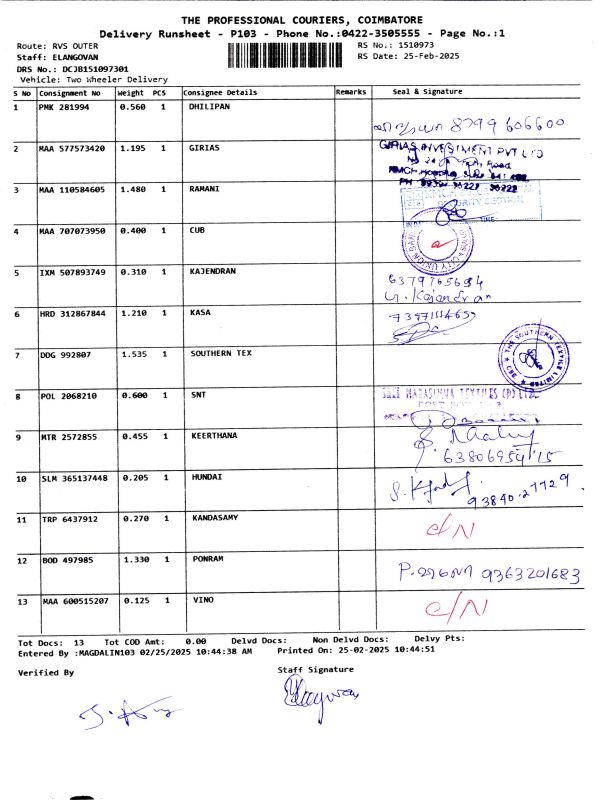 THE PROFESSIONAL COURIERS, COIMBATORE
Delivery Runsheet - P103 - Phone No.:0422-3505555 - Page No.:1
Route: RVS OUTER RS No.: 1510973
Staff: ELANGOVAN RS Date: 25-Feb-2025
DRS No.: DCJB151097301
Vehicle: Two Wheeler Delivery
S No Consignment No Weight PCS Consignee Details Remarks Seal & Signature
1 PMK 281994 0.560 1 DHILIPAN
8799 606600
2 MAA 577573420 1.195 1 GIRIAS GIRIAS INVESTMENT PVT LTD
Road
3 MAA 110584605 1.480 1 RAMANI
SECURITY SECTION
TIME:
4 MAA 707073950 0.400 1 CUB CITY UNION BANK
5 IXM 507893749 0.310 1 KAJENDRAN 6379765694
G. Kajendran
6 HRD 312867844 1.210 1 KASA
7 DDG 992807 1.535 1 SOUTHERN TEX THE SOUTHERN TEXTILE LIMITED ★ CBE ★
8 POL 2068210 0.600 1 SNT SREE NARASIMHA TEXTILES (P) LTD
9 MTR 2572855 0.455 1 KEERTHANA
6380695415
10 SLM 365137448 0.205 1 HUNDAI
93840.27729
11 TRP 6437912 0.270 1 KANDASAMY C/N
12 BOD 497985 1.330 1 PONRAM P. 9363201683
13 MAA 600515207 0.125 1 VINO C/N
Tot Docs: 13 Tot COD Amt: 0.00 Delvd Docs: Non Delvd Docs: Delvy Pts:
Entered By :MAGDALIN103 02/25/2025 10:44:38 AM Printed On: 25-02-2025 10:44:51
Verified By Staff Signature
Elangovan